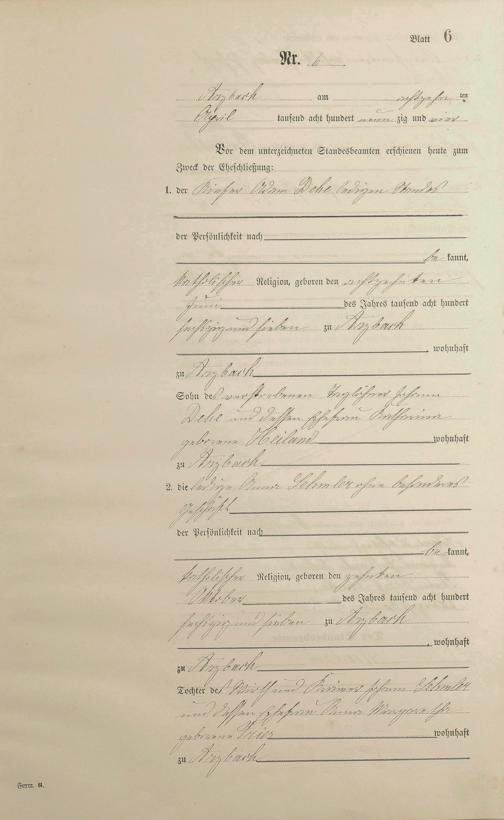 Blatt 6
Nr. 6
Arzbach am achtzehnten
April tausend acht hundert neunzig und vier
Vor dem unterzeichneten Standesbeamten erschienen heute zum
Zweck der Eheschließung:
1. der Adam Dehe ledigen Standes
der Persönlichkeit nach
bekannt,
katholischer Religion, geboren den achtzehnten
Juni des Jahres tausend acht hundert
sechszig und sieben zu Arzbach
, wohnhaft
zu Arzbach
Sohn des verstorbenen Taglöhner Johann
Dehe und dessen Ehefrau Katharina
geborene Heiland wohnhaft
zu Arzbach
2. die ledige Anna Lehmler ohne besonderes
Geschäft
der Persönlichkeit nach
bekannt,
katholischer Religion, geboren den zehnten
Oktober des Jahres tausend acht hundert
sechszig und sieben zu Arzbach
, wohnhaft
zu Arzbach
Tochter des Wirth und Johann Lehmler
und dessen Ehefrau Anna Margarethe
geborene wohnhaft
zu Arzbach
Form. B.